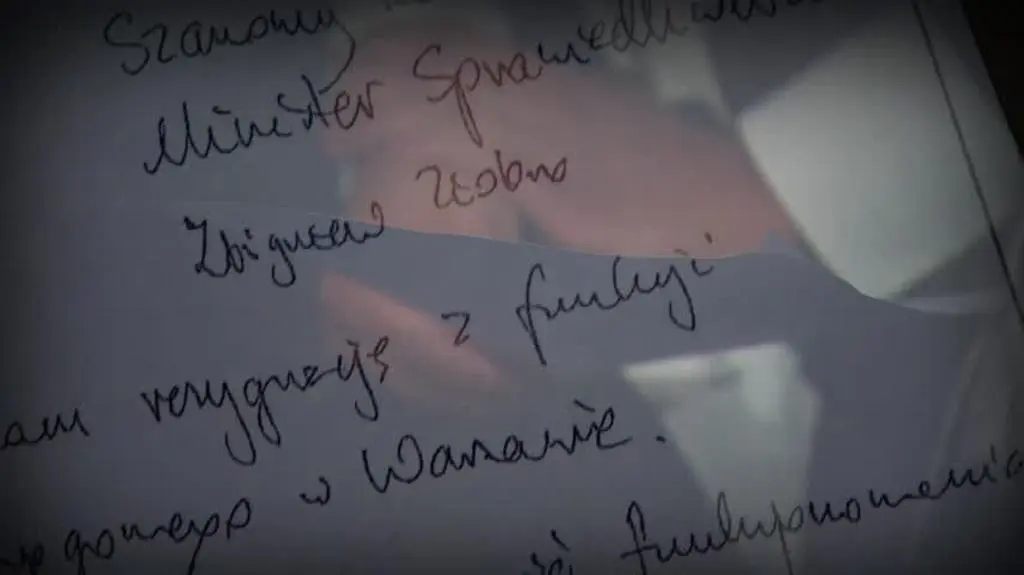 Szanowny
Minister Sprawiedliwości
Zbigniew Ziobro
rezygnację z funkcji
w Warszawie.
funkcjonowania